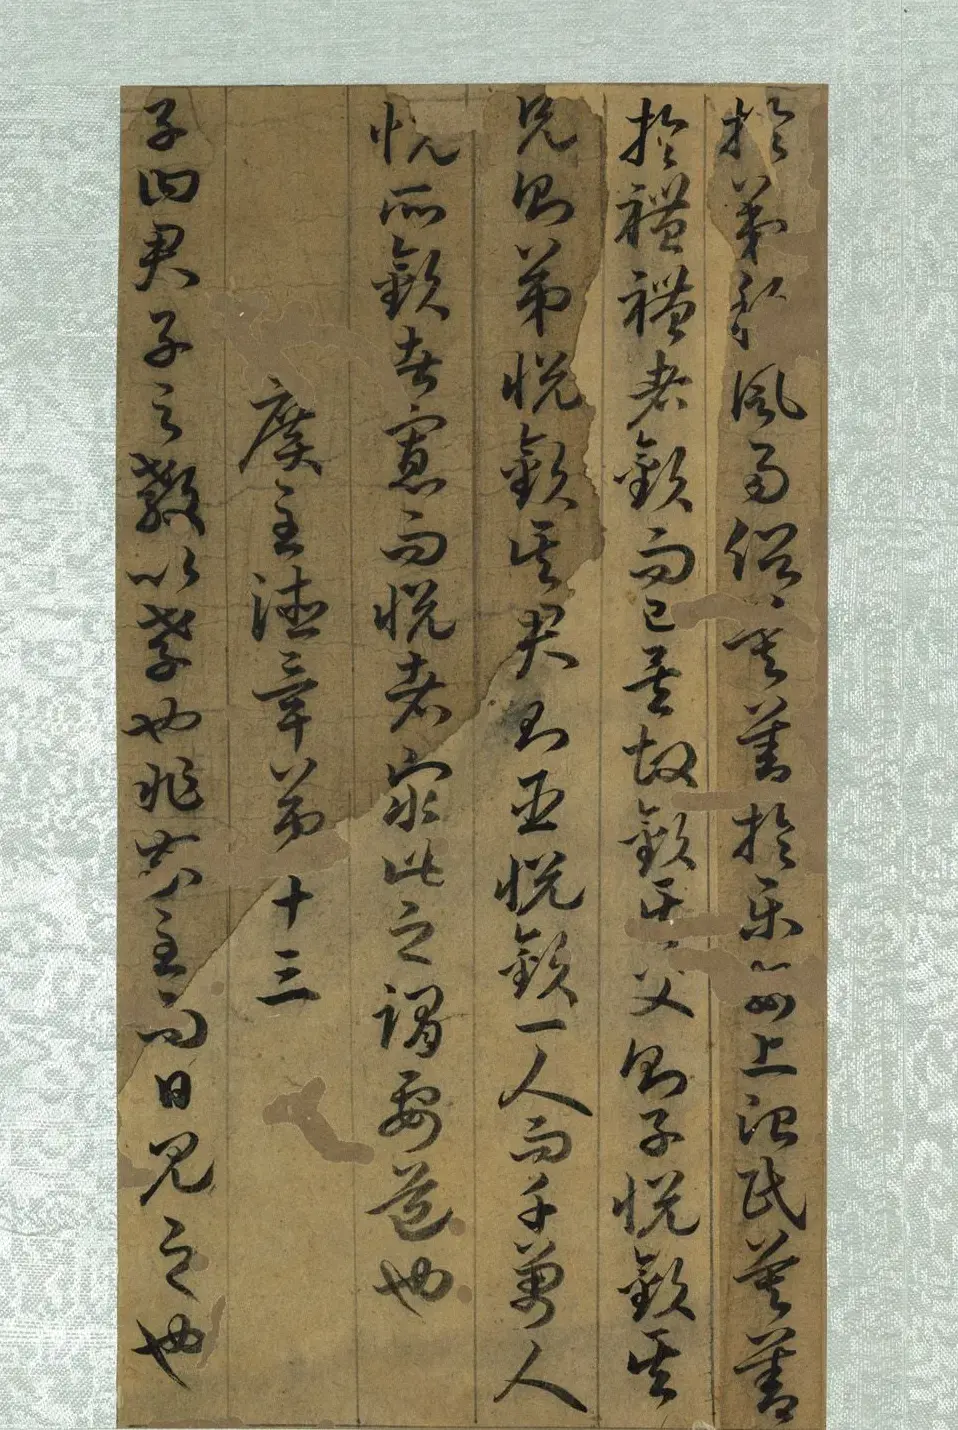 於弟移風易俗莫善於樂安上治民莫善
於禮禮者敬而已矣故敬其父則子悅敬其
兄則弟悅敬其君則臣悅敬一人而千萬人
悅所敬者寡而悅者衆此之謂要道也
廣至德章第十三
子曰君子之教以孝也非家至而日見之也